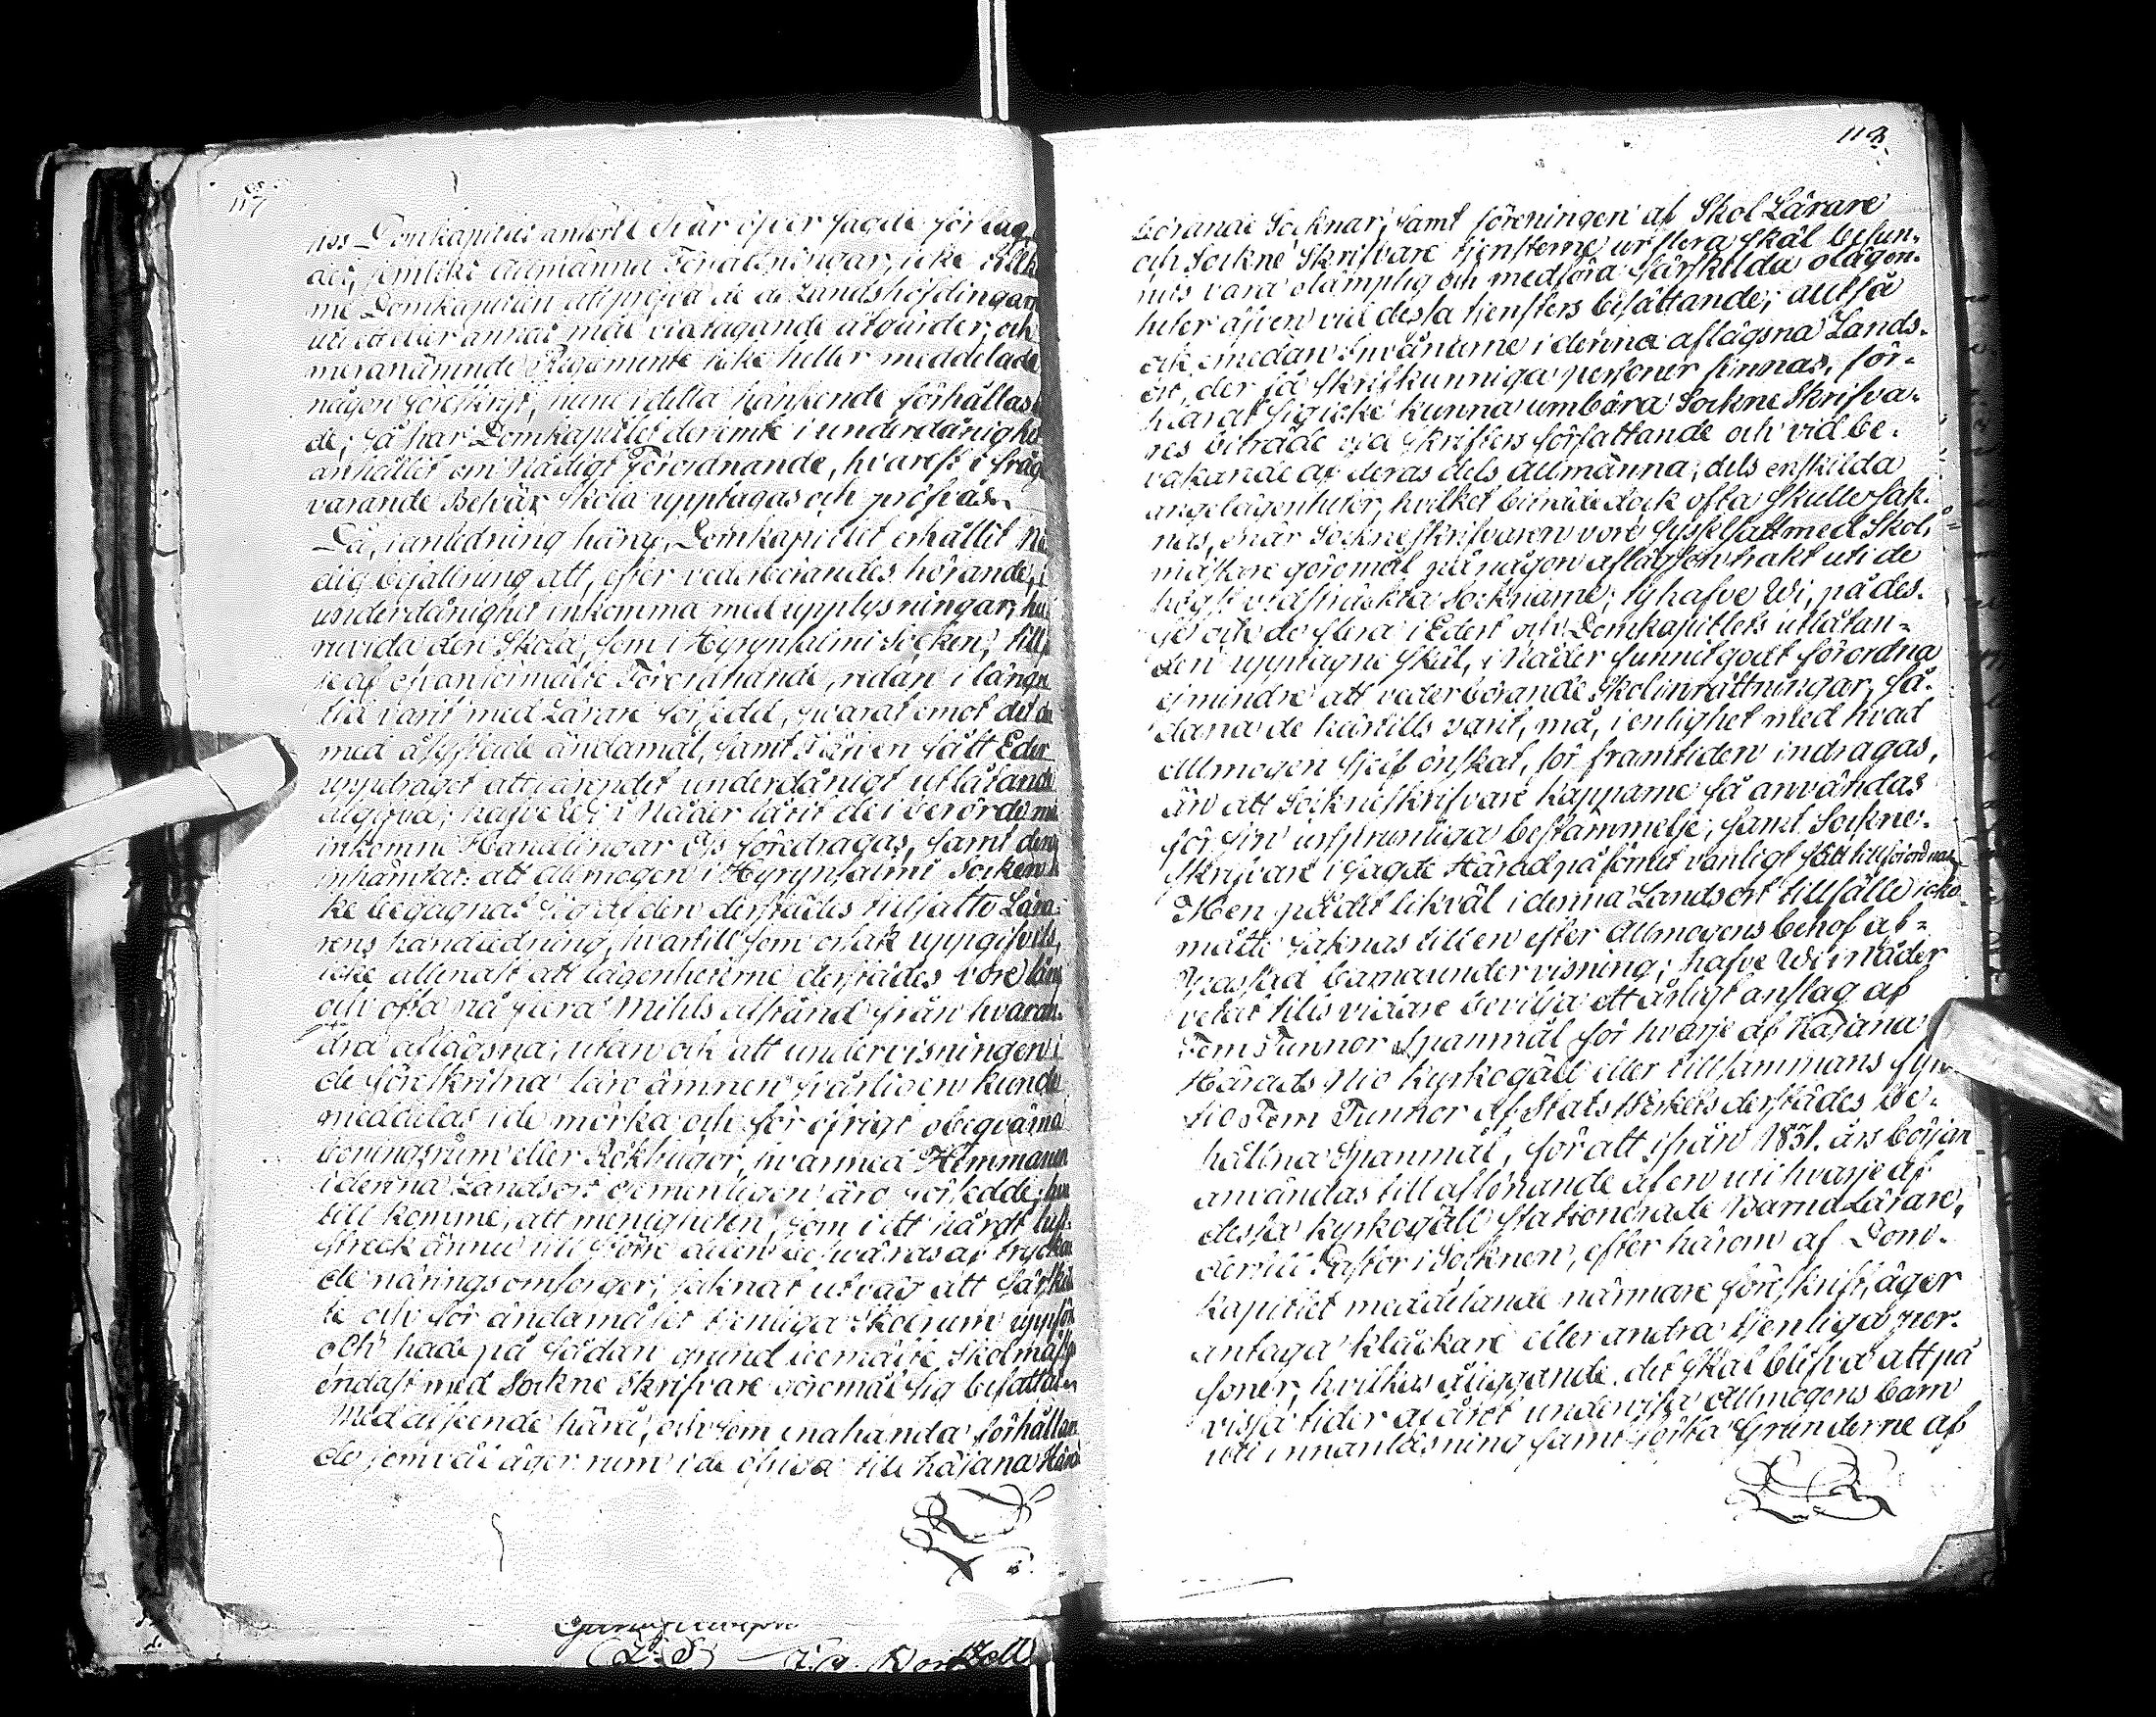 117
hos Domkapitlet anförte Besvär öfver sagde förslag
des, jemlikt Allmänna Författningar, icke tillkom
me Domkapitlen att pröfva de af Landshöfdingarne
uti ett eller annat mål vidtagande åtgärder, och
meranämnde Reglemente icke heller meddelade
någon föreskrift, huru i detta hänseende förhållas
de; så har Domkapitlet derjemte i underdånighet
anhållit om Nådigt Förordnande, hvarest i fråga
varande Besvär skola upptagas och pröfvas.
Då, i anledning häraf, Domkapitlet erhållit Nå
dig befallning att, efter vederbörandes hörande, i
underdånighet inkomma med upplysningar, hu
ruvida den Skola, som i Hyrynsalmi Socken, till
följe af ofvanberörde Förordnande, redan i längre
tid varit med Lärare försedd, svarat emot det der
med åsyftade ändamål, samt I äfven fått Eder
uppdraget att i ärendet underdånigt utlåtande
afgifva; hafve Wi i Nåder låtit de i berörde mål
inkomne Handlingar Oss föredragas, samt deraf
inhämtat: att Allmogen i Hyrynsalmi Socken ic
ke begagnat sig af den derstädes tillsatte Lära
rens handledning, hvartill som orsak uppgifvits,
icke allenast att lägenheterne derstädes vore lång
och ofta på flera Mihls afstånd från hvaran
dra aflägsna; utan ock att undervisningen i
de föreskrifna läroämnen svårligen kunde
meddelas i de mörka och för öfrigt obeqväma
boningsrum eller Rökhugor, hvarmed Hemmanen
i denna Landsort gemenligen äro försedde; hvar
till komme, att menigheten, som i ett hårdt luft-
streck ännu till större delen besväras af trycken
de näringsomsorger, saknat utväg att särskil
te och för ändamålet tjenliga Skolrum uppföra
och hade på sådan grund bemälte Skolmästare
endast med Sockne Skrifvare göromål sig befattat.
Med afseende härå, och som enahanda förhållan
de jemväl äger rum i de öfriga till Kajana Härad
Gemensamt
L. S.
118
hörande Socknar, samt föreningen af Skol Lärare
och Sockne Skrifvare tjensterne ur flera skäl befun-
nits vara olämplig och medföra särskilda olägen-
heter äfven vid dessa tjensters besättande; alltså
och emedan Invånarne i denna aflägsna Lands-
ort, der få skrifkunniga personer finnas, för-
klarat sig icke kunna umbära Sockne Skrifva-
res biträde vid skrifters författande och vid be-
vakande af deras dels Allmänna, dels enskilda
angelägenheter, hvilket biträde dock ofta skulle sak-
nas, enär Sockneskrifvaren vore sysselsatt med Skol-
mästare göromål på någon aflägsen trakt uti de
högst vidsträckta Socknarne; ty hafve Wi, på des-
se och de flera i Edert och Domkapitlets utlåtan-
den upptagne skäl, i Nåder funnit godt förordna
ej mindre att vederbörande Skolinrättningar, så-
dana de härtills varit, må, i enlighet med hvad
Allmogen sjelf önskat, för framtiden indragas,
än att Sockneskrifvare kapparne få användas
för sin ursprungliga bestämmelse, samt Sockne-
Skrifvare i sagde Härad på förut vanligt sätt tillförordnas.
Men på det likväl i denna Landsort tillfälle icke
måtte saknas till en efter Allmogens behof af-
passad barnaundervisning; hafve Wi i Nåder
velat tills vidare bevilja ett årligt anslag af
Fem Tunnor Spanmål för hvarje af Kajana
Härads Nio Kyrkogäll eller tillsammans fyr-
tio Fem Tunnor af Stats Werkets derstädes Be-
hållna Spanmål, för att ifrån 1831. års början
användas till aflönande af en uti hvarje af
dessa Kyrkogäll stationerade Barna Lärare,
dertill Pastor i Socknen, efter härom af Dom-
kapitlet meddelande närmare föreskrift, äger
antaga Klåckare eller andra tjenliga per-
soner, hvilkas åliggande det skal blifva att på
vissa tider af året undervisa Allmogens barn
uti innanläsning samt första Grunderne af